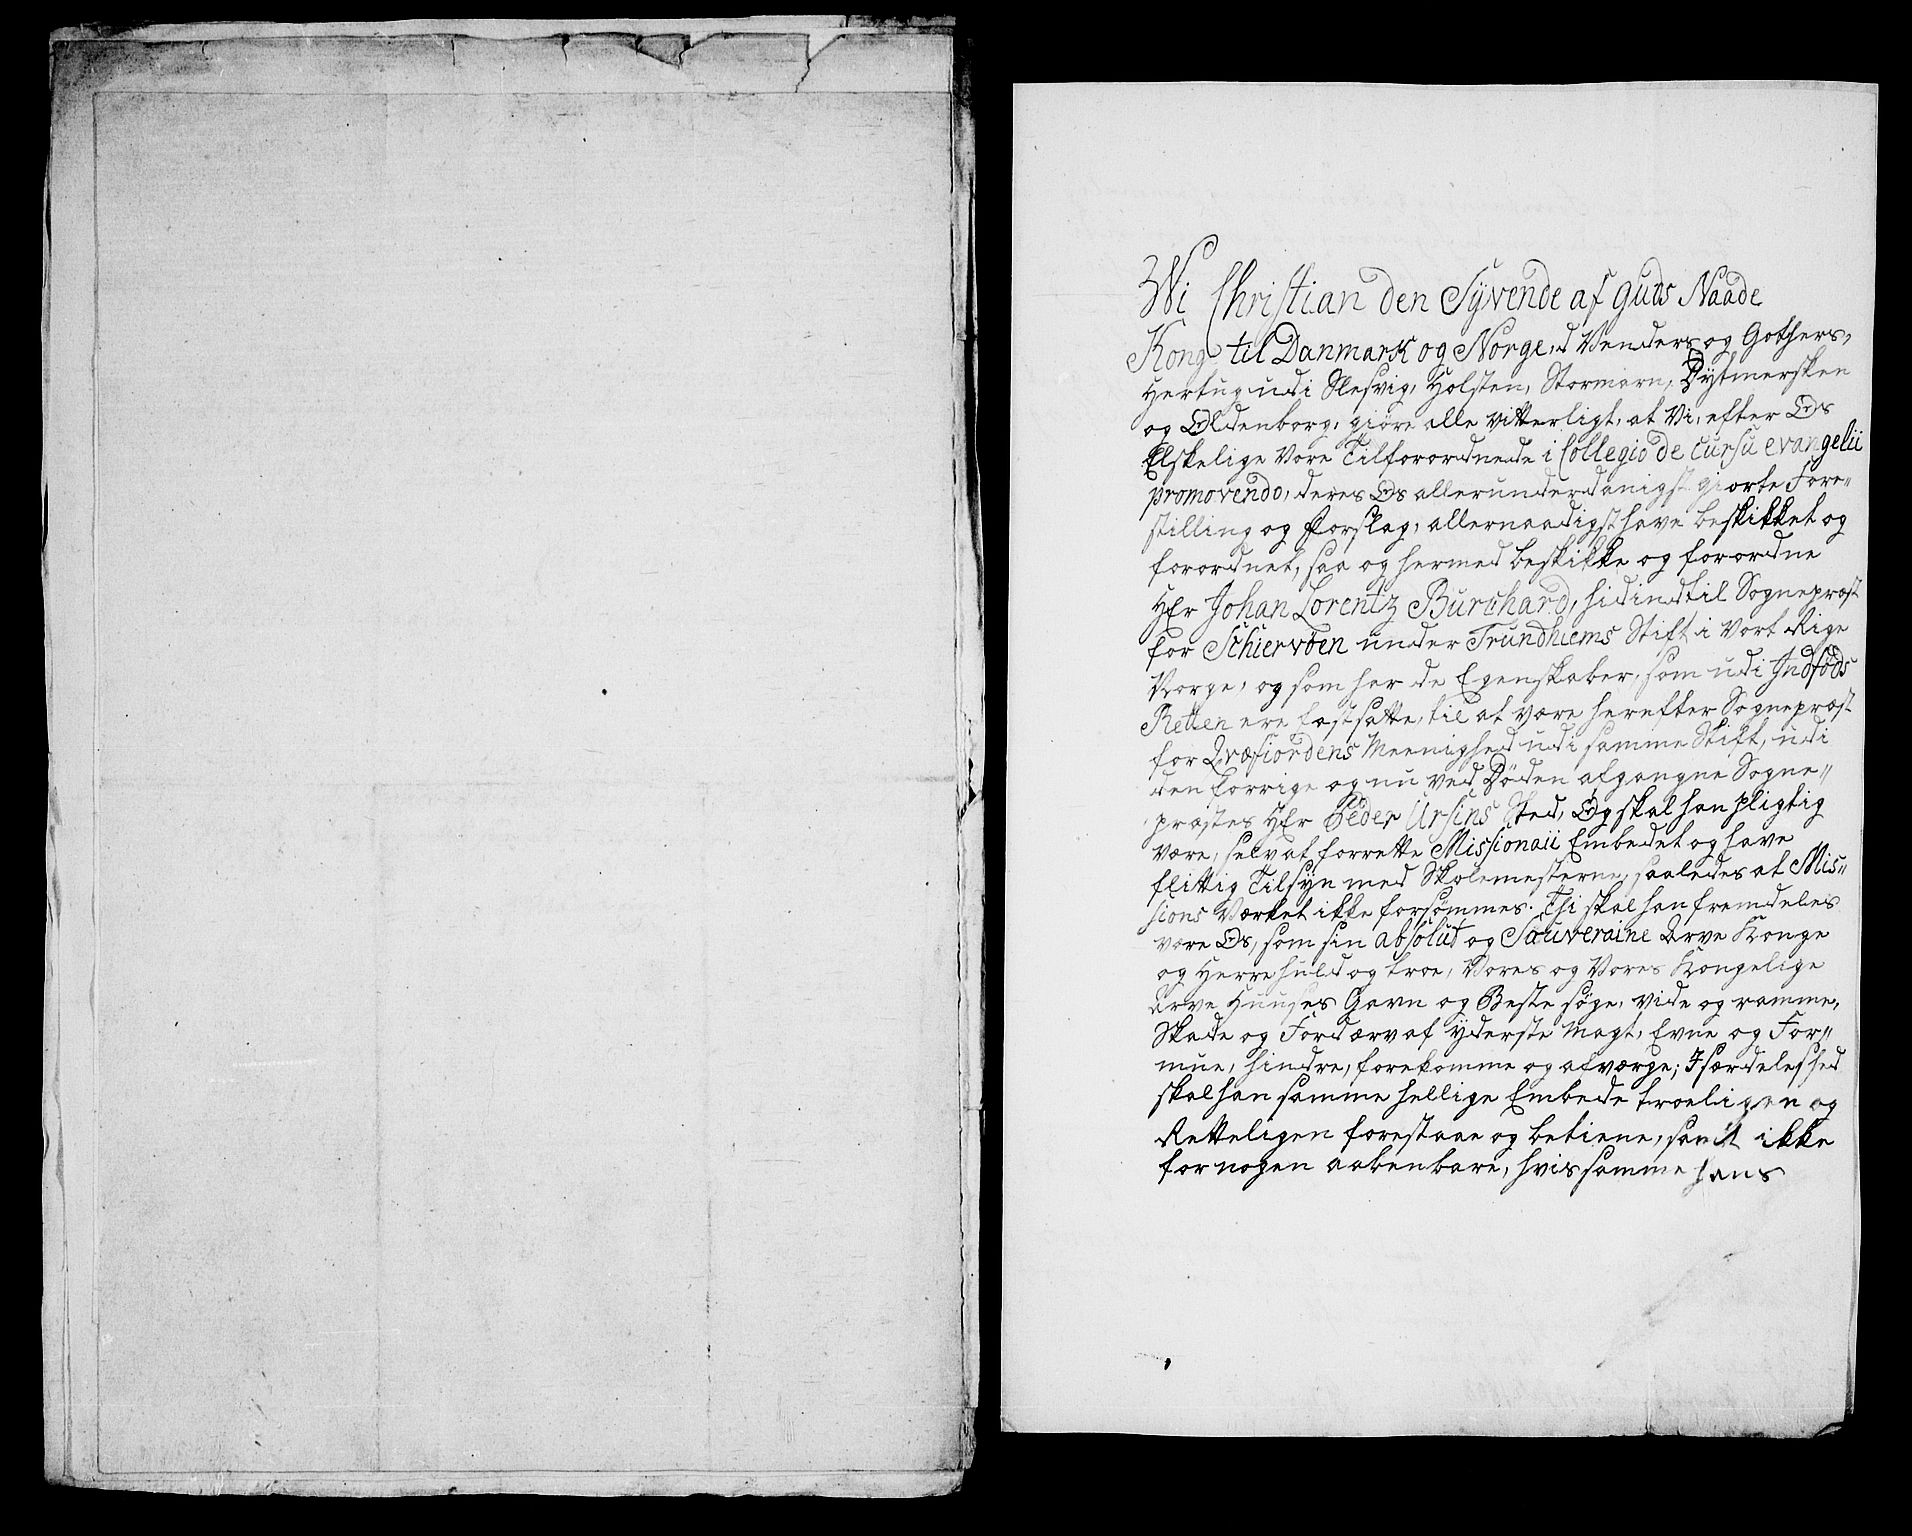 Wi Christian den Syvende af Guds Naade
Konge til Danmark og Norge, d Venders og Gothers,
Hertug udi Slesvig, Holsten, Stormarn, Dytmersken
og Oldenborg, giöre alle vitterligt, at Vi, efter Os
Elskelige Vore Tilforordnede i Collegio de cursu evangelii
promovendo, deres Os allerunderdanigst giorte Fore„
stilling og Forslag, allernaadigst have beskikket og
forordnet, saa og hermed beskikke og forordne
HEr Johan Lorentz Burchard, hidindtil Sognepræst
for Schiervöen under Trundhiems Stift i Vort Rige
Norge, og som har de Egenskaber, som udi Indföds
Retten ere fastsatte, til at være herefter Sognepræst
for Qvæfiordens Meenighed udi samme Stift, udi
den forrige og nu ved Döden afgangne Sogne„
præstes HEr Peder Ursins Sted, Og skal han pligtig
være, selv at forrette Missionaii Embedet og have
flittig Tilsyn med Skolemesterne, saaledes at Mis„
sions Værket ikke forsömmes. Thi skal han fremdeles
være Os, som sin absolut og Souveraine Arve Konge
og Herre huld og troe, Vores og Vores Kongelige
Arve Huuses Gavn og Beste söge, vide og ramme,
Skade og Fordærv af yderste Magt, Evne og For„
mue, hindre, forekomme og afværge; Isærdeleshed
skal han samme hellige Embede troeligen og
Retteligen forestaae og betiene, samt ikke
for nogen aabenbare, hvis samme hans